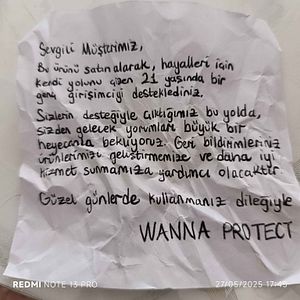 Sevgili Müşterimiz,
Bu ürünü satın alarak, hayalleri için
kendi yolunu çizen 21 yaşında bir
genç girişimciyi desteklediniz.
Sizlerin desteğiyle çıktığımız bu yolda,
sizden gelecek yorumları büyük bir
heyecanla bekliyoruz. Geri bildirimleriniz
ürünlerimizi geliştirmemize ve daha iyi
hizmet sunmamıza yardımcı olacaktır.
Güzel günlerde kullanmanız dileğiyle
WANNA PROTECT
REDMI NOTE 13 PRO
27/05/2025 17:45